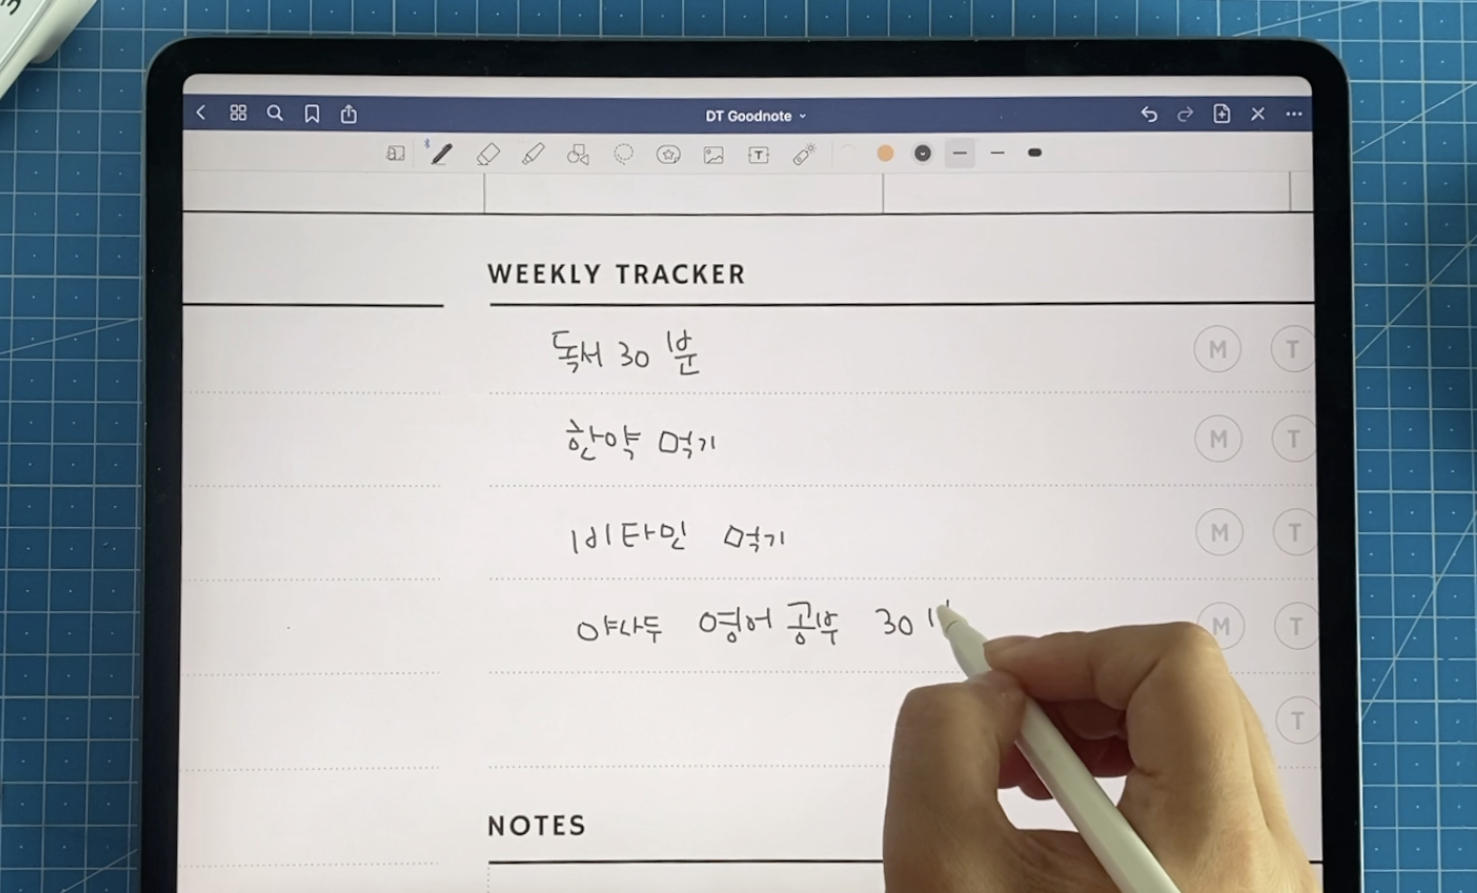 DT Goodnote
T
WEEKLY TRACKER
독서 30분 M T
한약 먹기 M T
비타민 먹기 M T
야나두 영어 공부 30 M T
T
NOTES